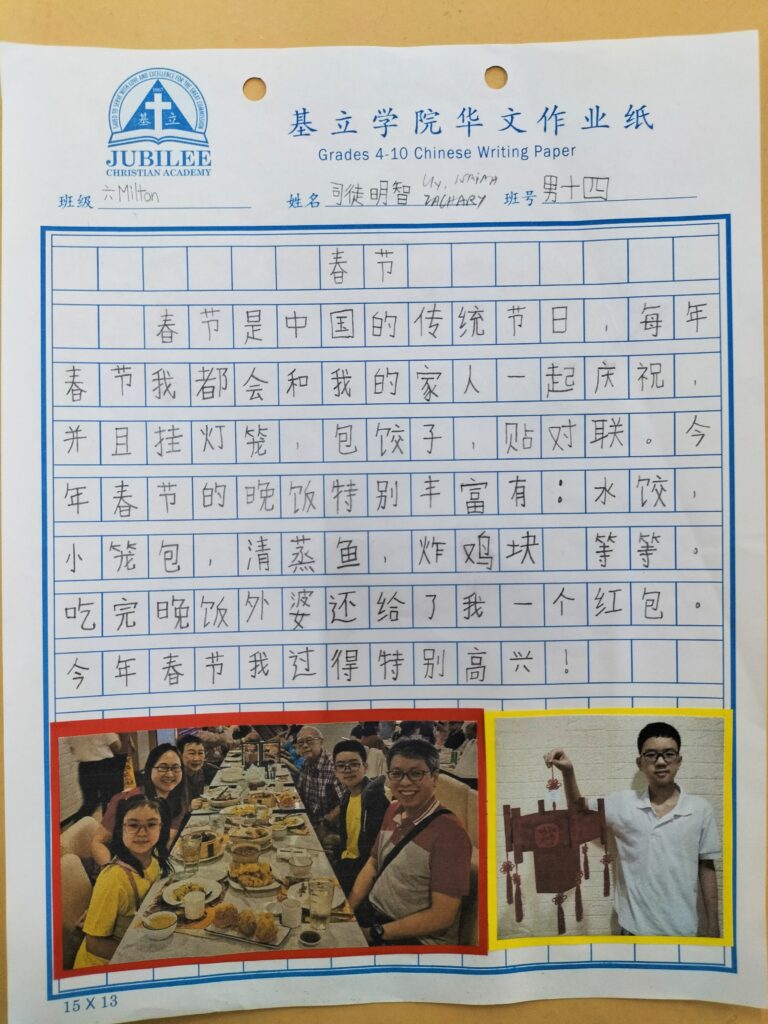 CALLED TO SERVE WITH LOVE AND EXCELLENCE FOR THE GREAT COMMISSION
1967
基立
JUBILEE
CHRISTIAN ACADEMY
基立学院华文作业纸
Grades 4-10 Chinese Writing Paper
班级 六Milton 姓名 司徒明智 Uy, ZACHARY 班号 男十四
春节
春节是中国的传统节日，每年
春节我都会和我的家人一起庆祝，
并且挂灯笼，包饺子，贴对联。今
年春节的晚饭特别丰富有：水饺，
小笼包，清蒸鱼，炸鸡块 等等。
吃完晚饭外婆还给了我一个红包。
今年春节我过得特别高兴！
15 X 13